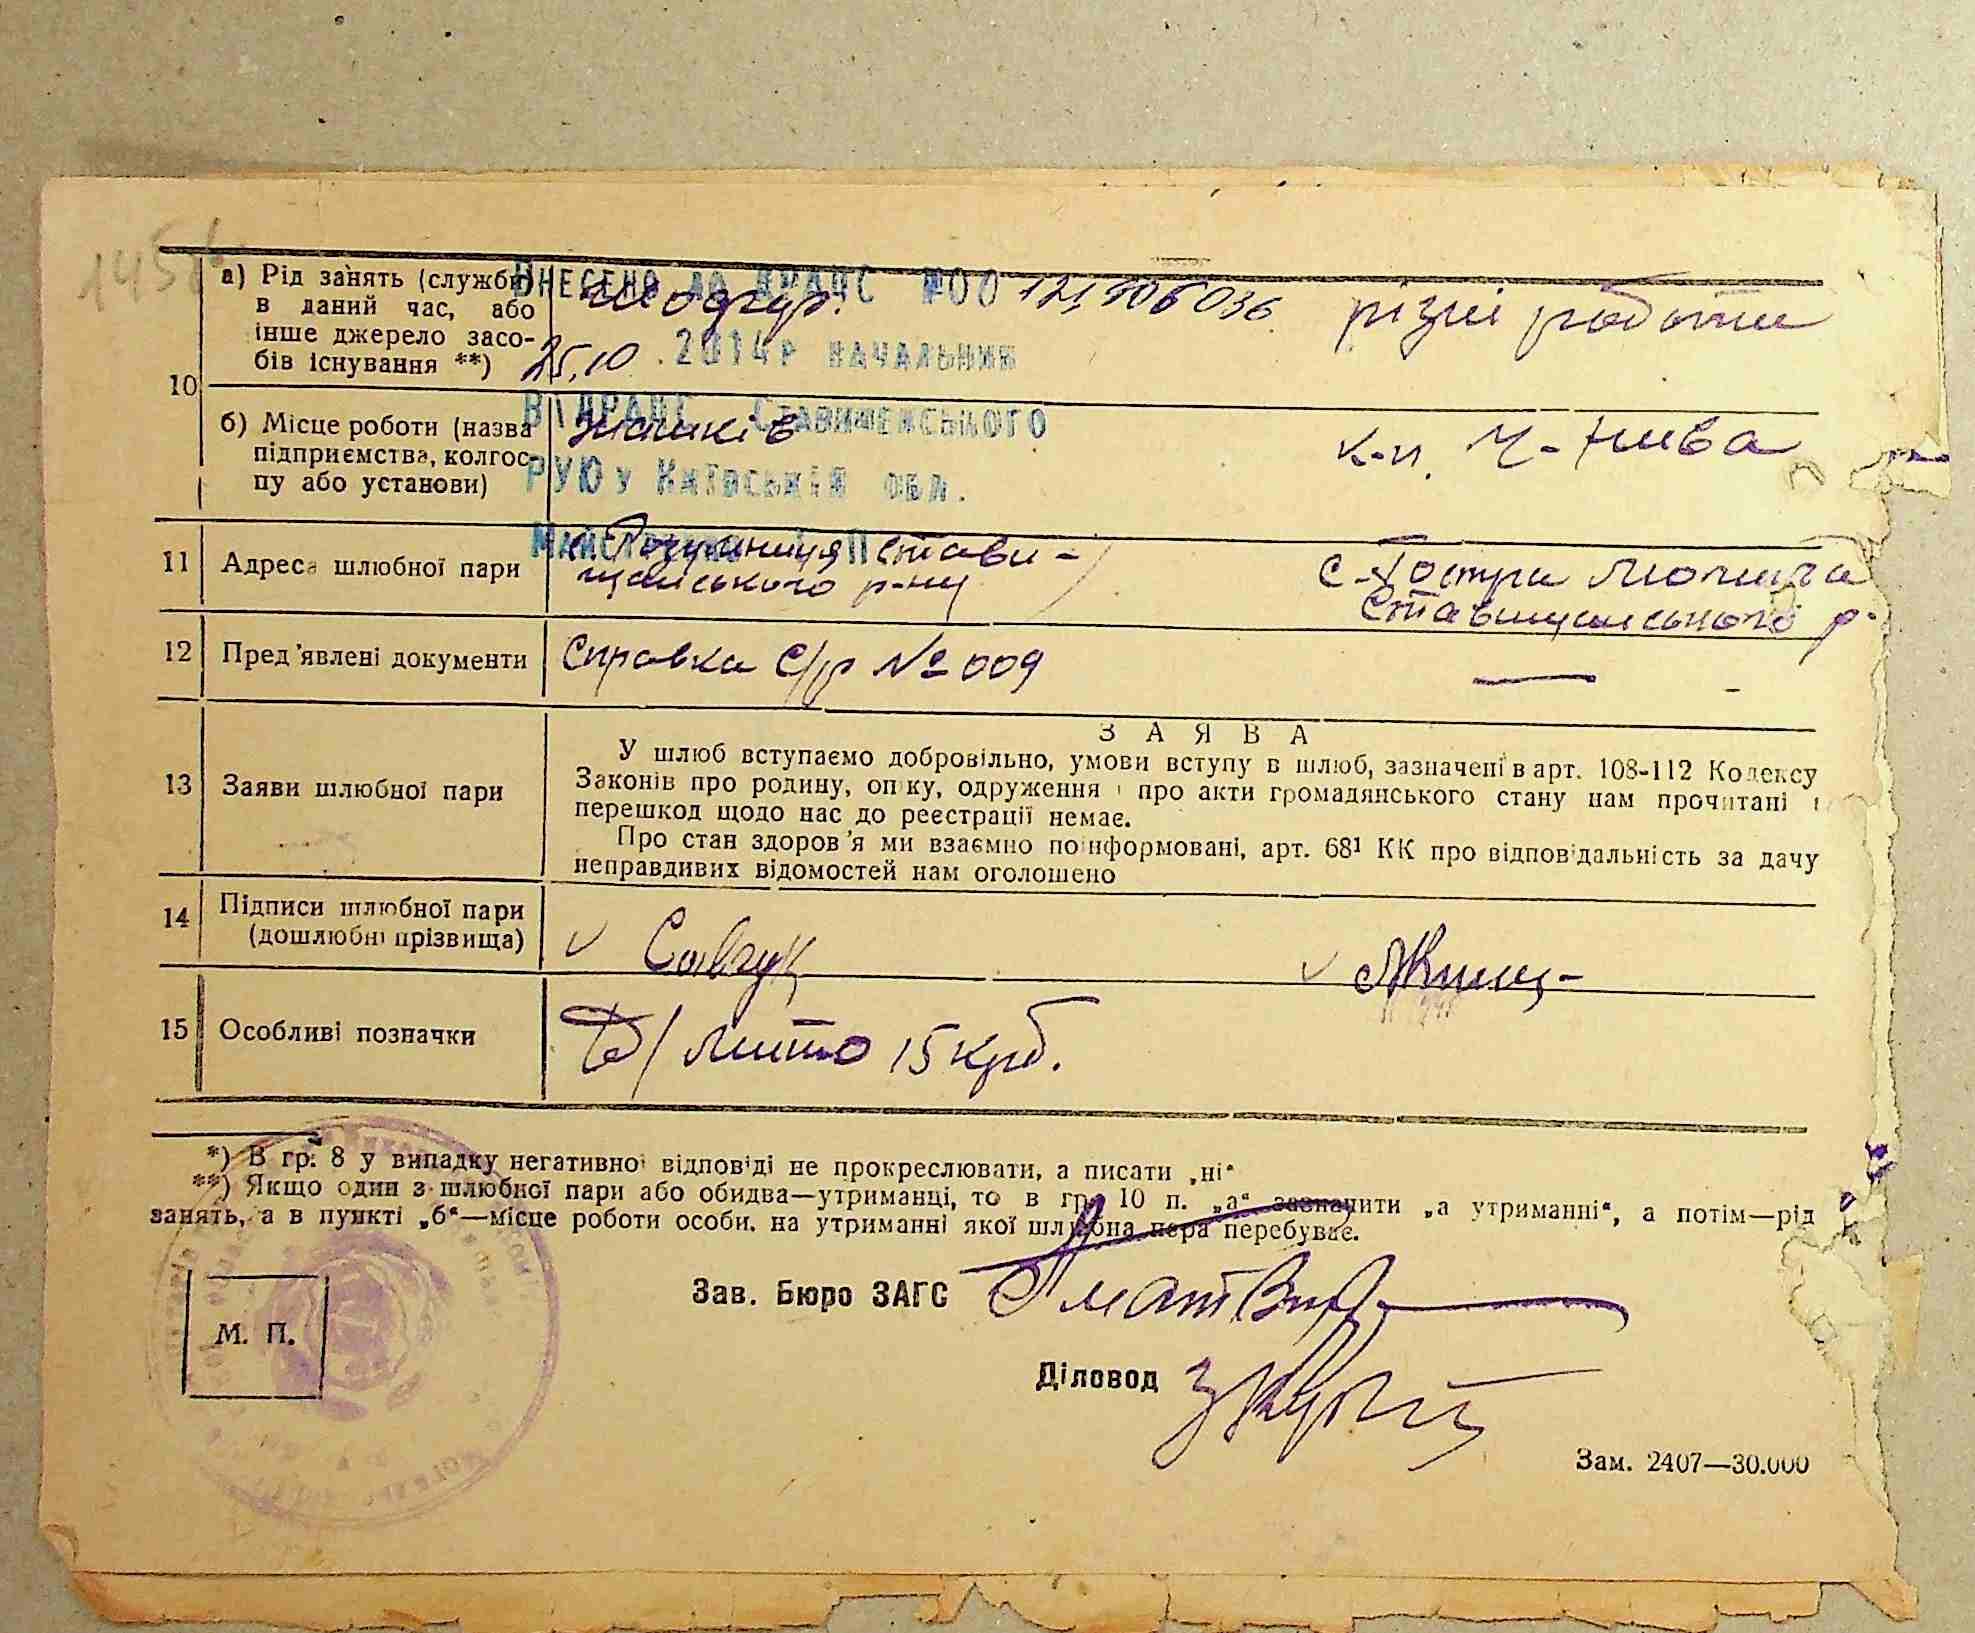 145
а) Рід занять (служби) в даний час, або інше джерело засобів існування **)
Внесено до ДРАЦС №00 121306036
шофер. різні роботи
25.10.2014р начальник
10
б) Місце роботи (назва підприємства, колгоспу або установи)
ВДРАЦС Ставищенського
Жашків к-п. Ч-Нива
РУЮ у Київській обл.
11 Адреса шлюбної пари
с Розумниця Стави-
щанського р-ну
с. Гостра Могила
Ставищанського р-
12 Пред'явлені документи Справка С/р № 009 —
З А Я В А
13 Заяви шлюбної пари
У шлюб вступаємо добровільно, умови вступу в шлюб, зазначені в арт. 108-112 Кодексу
Законів про родину, опіку, одруження і про акти громадянського стану нам прочитані і
перешкод щодо нас до реєстрації немає.
Про стан здоров'я ми взаємно поінформовані, арт. 68¹ КК про відповідальність за дачу
неправдивих відомостей нам оголошено
14 Підписи шлюбної пари
(дошлюбні прізвища)
Савчук
15 Особливі позначки мито 15 крб.
*) В гр. 8 у випадку негативної відповіді не прокреслювати, а писати „ні“
**) Якщо один з шлюбної пари або обидва—утриманці, то в гр. 10 п. „а“ зазначити „а утриманні“, а потім—рід
занять, а в пункті „б“—місце роботи особи. на утриманні якої шлюбна пара перебуває.
Зав. Бюро ЗАГС
М. П.
Діловод
Зам. 2407—30.000